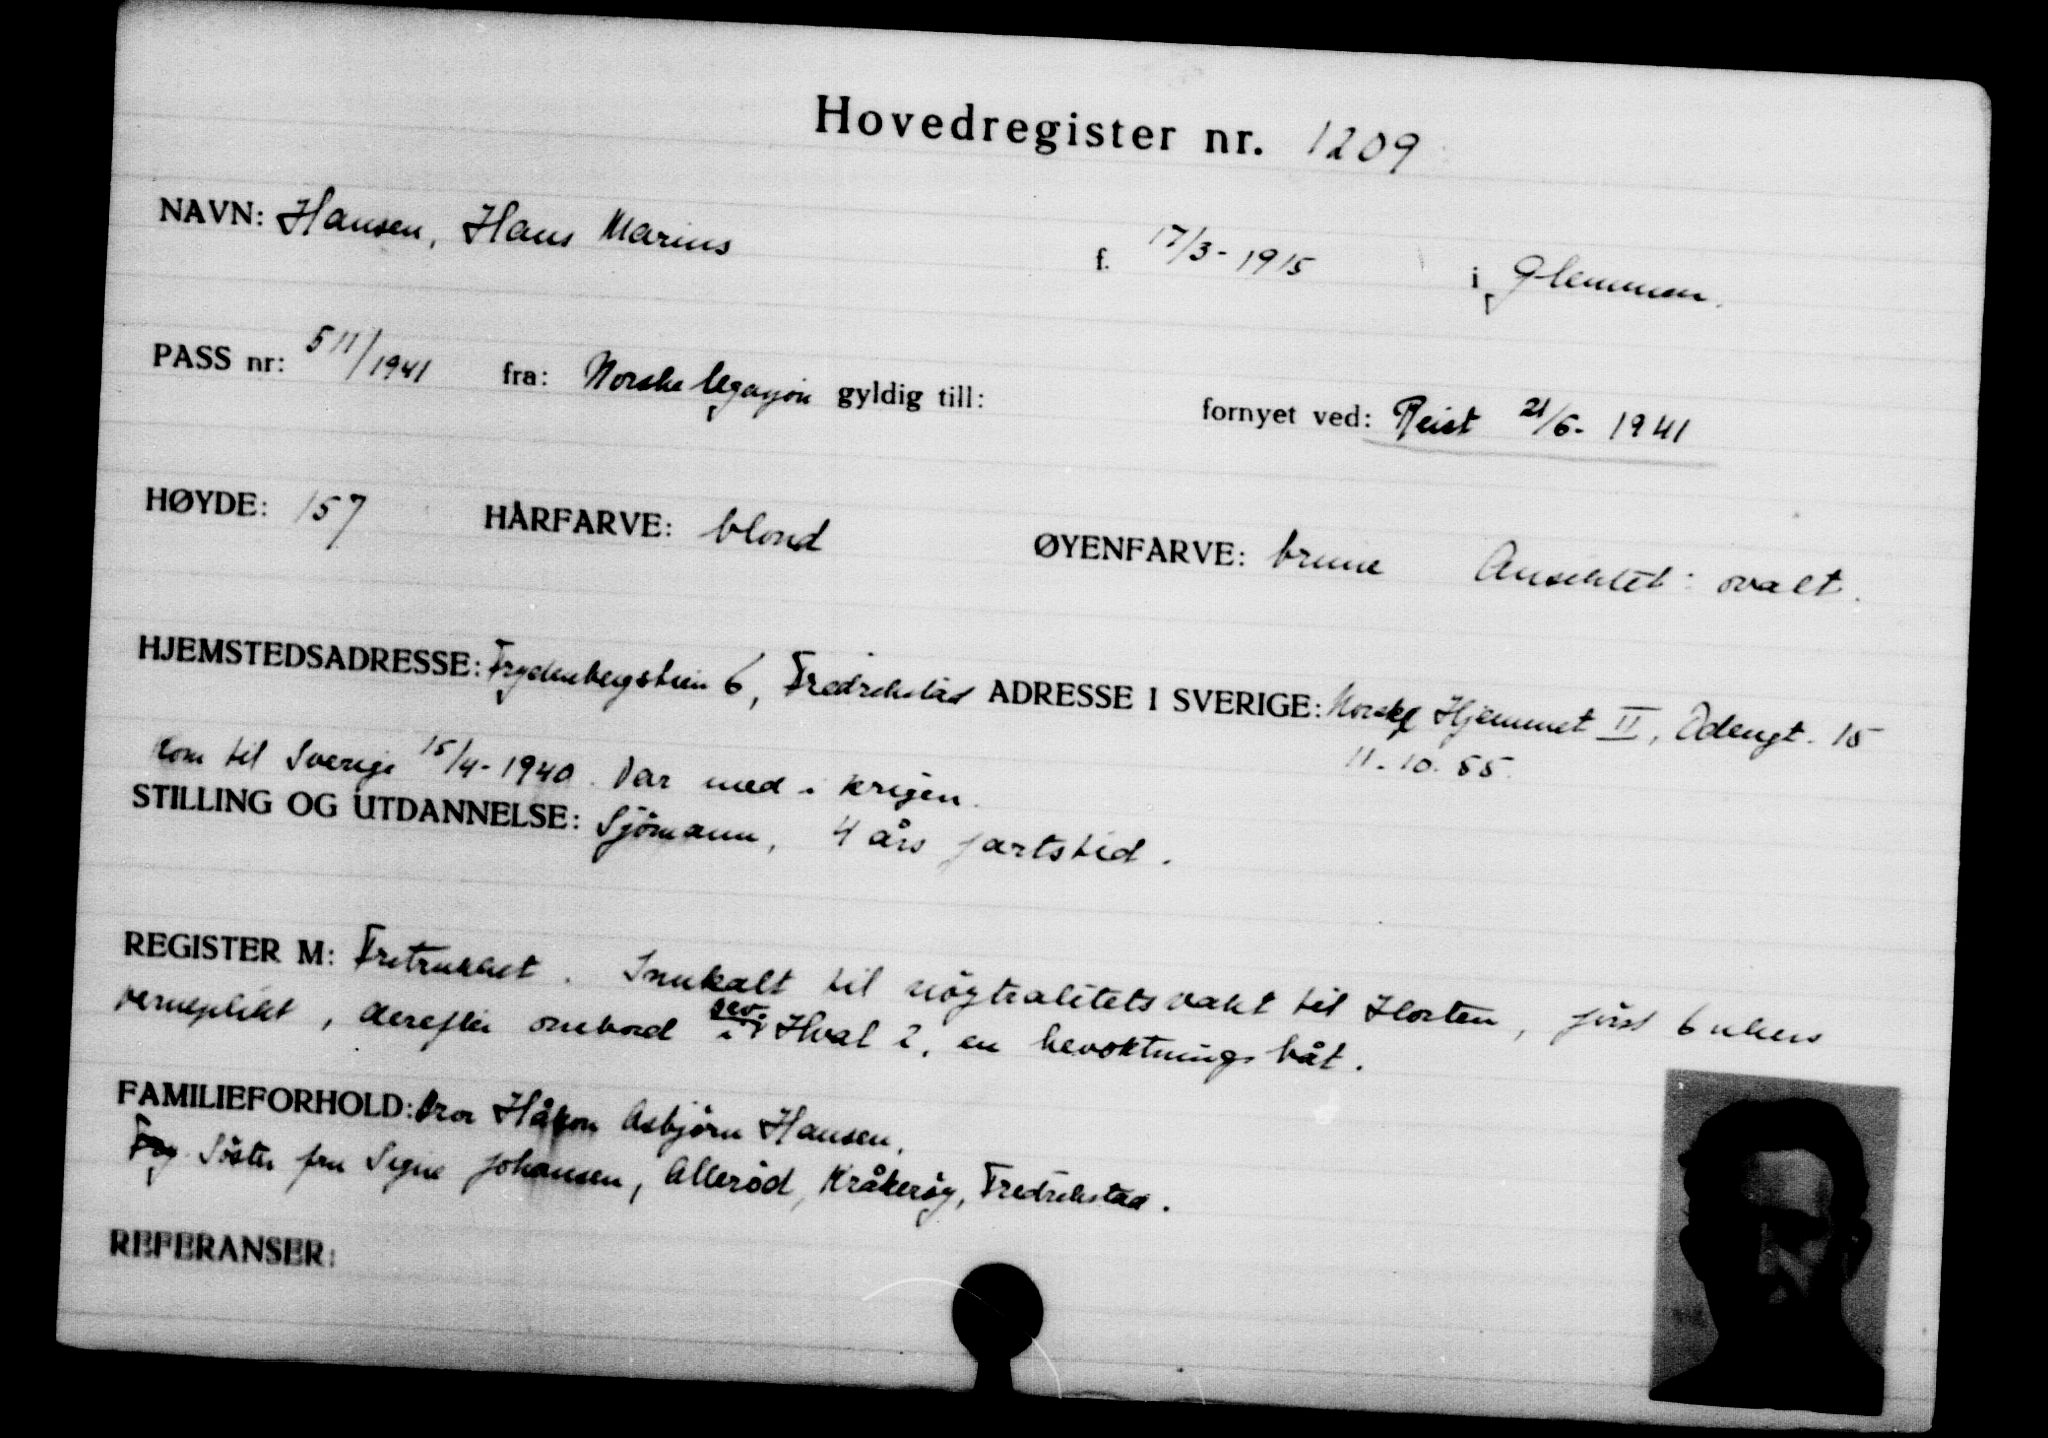 Hovedregister nr. 1209
NAVN: Hansen, Hans Marius f. 17/3-1915 i Glemmen.
PASS nr: 511/1941 fra: Norske legasjon gyldig till: fornyet ved: Reist 21/6-1941
HØYDE: 157 HÅRFARVE: blond ØYENFARVE: brune Ansiktet: ovalt.
HJEMSTEDSADRESSE: Frydenbergstien 6, Fredrikstad ADRESSE I SVERIGE: Norske Hjemmet II, Odengt. 15
11-10.55.
Kom til Sverige 15/4-1940. Var med i krigen.
STILLING OG UTDANNELSE: Sjömann, 4 års fartstid.
REGISTER M: Fretrukket. Innkalt til nöytralitetsvakt til Horten, först 6 ukers
verneplikt, derefter ombord i Hval 2, en bevoktningsbåt.
FAMILIEFORHOLD: Bror Håkon Asbjörn Hansen.
Söster fru Signe Johansen, Alleröd, Kråkeröy, Fredrikstad.
REFERANSER: